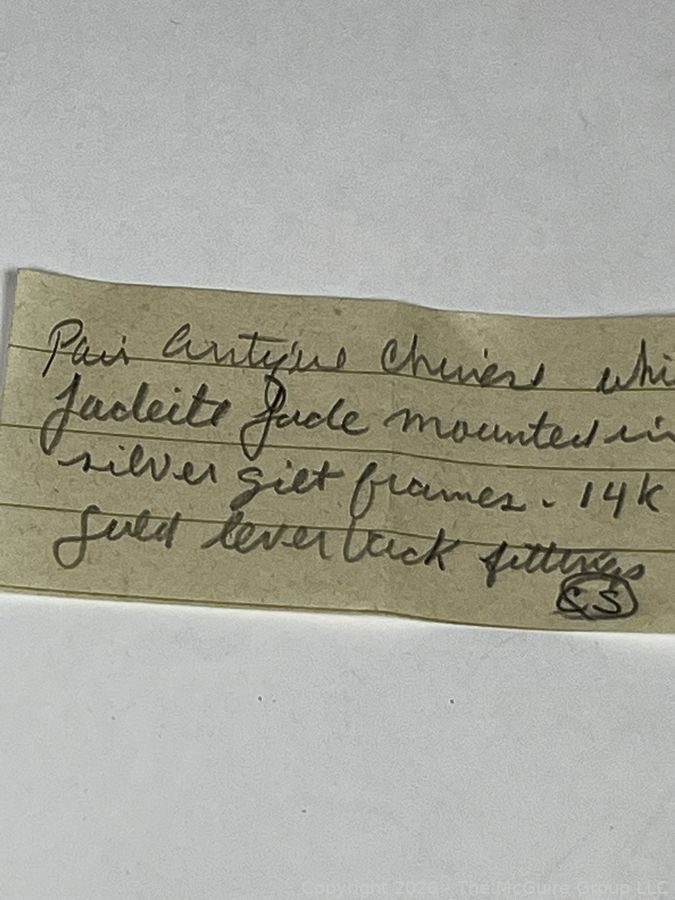 Pair antique Chinese whi
Jadeite Jade mounted in
silver gilt frames. 14K
gold leverback fittings
CS
Copyright 2026 - The McGuire Group LLC